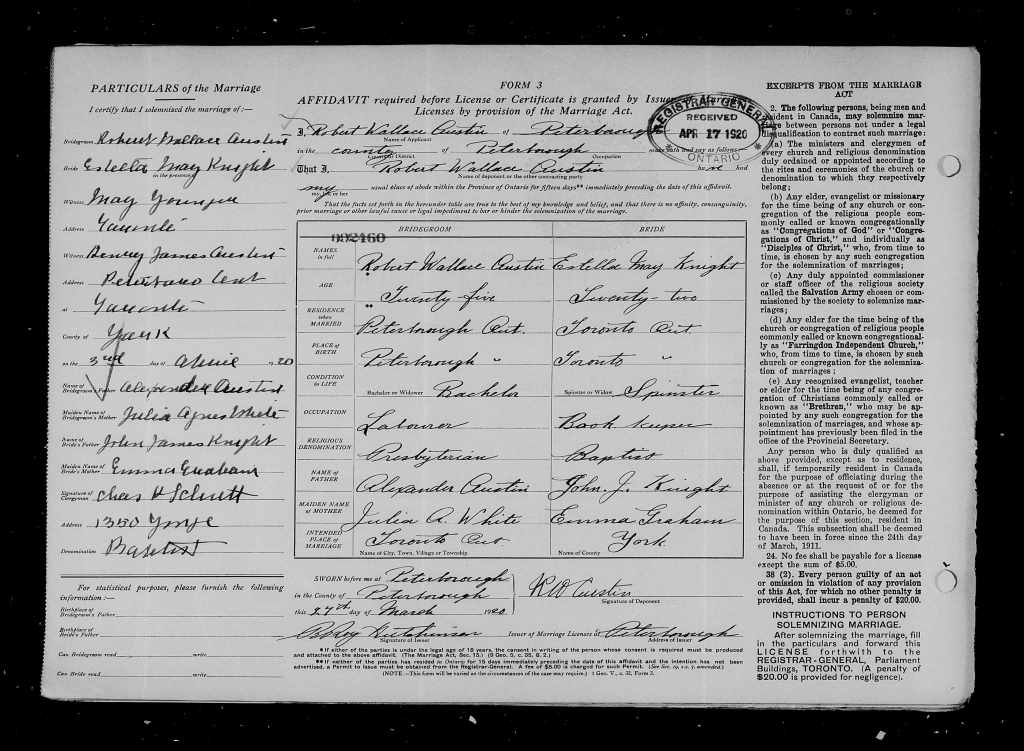 PARTICULARS of the Marriage
I certify that I solemnized the marriage of:—
Bridegroom Robert Wallace Austin
Bride Estella May Knight
in the presence of
Witness May
Address Toronto
Witness James Austin
Address Peterboro Ont
at Toronto
County of York
on the 3rd day of April 1920
Name of Bridegroom's Father Alexander Austin
Maiden Name of Bridegroom's Mother Julia Agnes White
Name of Bride's Father John James Knight
Maiden Name of Bride's Mother Emma Graham
Signature of Clergyman Chas H Schutt
Address 1350 Yonge
Denomination Baptist
For statistical purposes, please furnish the following
information:—
Birthplace of Bridegroom's Father
Birthplace of Bride's Father
Can Bridegroom read write
Can Bride read write
FORM 3
AFFIDAVIT required before License or Certificate is granted by Issuer of Marriage
Licenses by provision of the Marriage Act.
REGISTRAR GENERAL
RECEIVED
APR 17 1920
ONTARIO
I, Robert Wallace Austin of Peterborough
Name of Applicant
in the county of Peterborough make oath and say as follows:
County or District Occupation
That I, Robert Wallace Austin had
Name of deponent, or the other contracting party
my usual place of abode within the Province of Ontario for fifteen days** immediately preceding the date of this affidavit.
my, his or her
That the facts set forth in the hereunder table are true to the best of my knowledge and belief, and that there is no affinity, consanguinity,
prior marriage or other lawful cause or legal impediment to bar or hinder the solemnization of the marriage.
BRIDEGROOM BRIDE
002460
NAMES in full Robert Wallace Austin Estella May Knight
AGE * Twenty-five Twenty-two
RESIDENCE when MARRIED ** Peterborough Ont. Toronto Ont
PLACE OF BIRTH Peterborough " Toronto "
CONDITION in LIFE Bachelor or Widower Bachelor Spinster or Widow Spinster
OCCUPATION Labourer Book keeper
RELIGIOUS DENOMINATION Presbyterian Baptist
NAME OF FATHER Alexander Austin John. J. Knight
MAIDEN NAME OF MOTHER Julia A. White Emma Graham
INTENDED PLACE OF MARRIAGE Toronto Ont York
Name of City, Town, Village or Township Name of County
SWORN before me at Peterborough
in the County of Peterborough
this 27th day of March 1920
R W Austin
Signature of Deponent
Roy Hutchinson Issuer of Marriage Licenses at Peterborough
Signature of Issuer Address of Issuer
*If either of the parties is under the legal age of 18 years, the consent in writing of the person whose consent is required must be produced
and attached to the above affidavit. (The Marriage Act, Sec. 15.) (9 Geo. 5, c. 35, s. 2.)
**If neither of the parties has resided in Ontario for 15 days immediately preceding the date of this affidavit and the intention has not been
advertised, a Permit to Issue must be obtained from the Registrar-General. A fee of $5.00 is charged for such Permit.
(NOTE.—This form will be varied as the circumstances of the case may require.) 1 Geo. V., c. 32, Form 3.
EXCERPTS FROM THE MARRIAGE
ACT
2. The following persons, being men and
resident in Canada, may solemnize mar-
riage between persons not under a legal
disqualification to contract such marriage:
(a) The ministers and clergymen of
every church and religious denomination
duly ordained or appointed according to
the rites and ceremonies of the church or
denomination to which they respectively
belong;
(b) Any elder, evangelist or missionary
for the time being of any church or con-
gregation of the religious people com-
monly called or known congregationally
as "Congregations of God" or "Congre-
gations of Christ," and individually as
"Disciples of Christ," who, from time to
time, is chosen by any such congregation
for the solemnization of marriages;
(c) Any duly appointed commissioner
or staff officer of the religious society
called the Salvation Army chosen or com-
missioned by the society to solemnize mar-
riages;
(d) Any elder for the time being of the
church or congregation of religious people
commonly called or known congregational-
ly as "Farringdon Independent Church,"
who, from time to time, is chosen by such
church or congregation for the solemniza-
tion of marriages;
(e) Any recognized evangelist, teacher
or elder for the time being of any congre-
gation of Christians commonly called or
known as "Brethren," who may be ap-
pointed by any such congregation for the
solemnization of marriages, and whose ap-
pointment has previously been filed in the
office of the Provincial Secretary.
Any person who is duly qualified as
above provided, except as to residence,
shall, if temporarily resident in Canada
for the purpose of officiating during the
absence or at the request of or for the
purpose of assisting the clergyman or
minister of any church or religious de-
nomination within Ontario, be deemed for
the purpose of this section, resident in
Canada. This subsection shall be deemed
to have been in force since the 24th day
of March, 1911.
24. No fee shall be payable for a license
except the sum of $5.00.
38 (2). Every person guilty of an act
or omission in violation of any provision
of this Act, for which no other penalty is
provided, shall incur a penalty of $20.00.
INSTRUCTIONS TO PERSON
SOLEMNIZING MARRIAGE.
After solemnizing the marriage, fill
in the particulars and forward this
LICENSE forthwith to the
REGISTRAR-GENERAL, Parliament
Buildings, TORONTO. (A penalty of
$20.00 is provided for negligence).